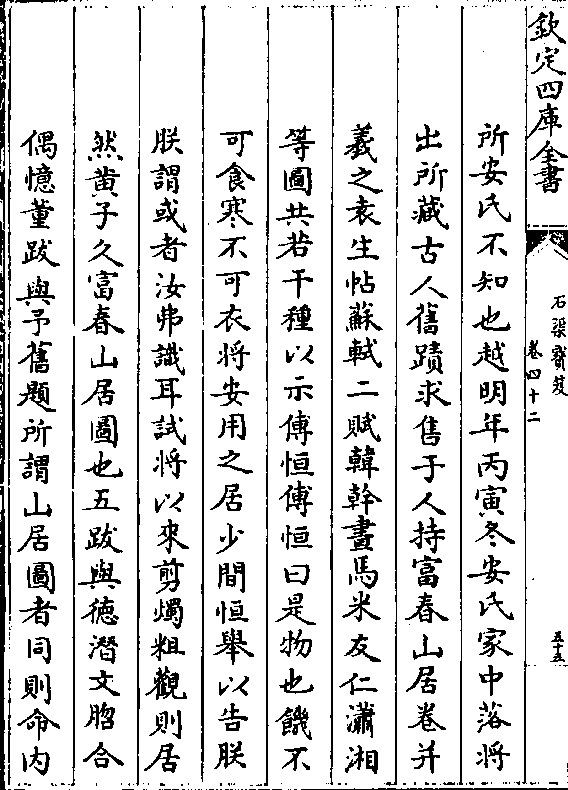 欽定四庫全書
石渠寳笈
卷四十二
五十五
所安氏不知也越明年丙寅冬安氏家中落將
出所藏古人舊蹟求售于人持富春山居卷并
羲之袁生帖蘇軾二賦韓幹畫馬米友仁瀟湘
等圖共若干種以示傅恒傅恒曰是物也饑不
可食寒不可衣將安用之居少間恒舉以告朕
朕謂或者汝弗識耳試將以來剪燭粗觀則居
然黄子久富春山居圖也五跋與徳潛文脗合
偶憶董跋與予舊題所謂山居圖者同則命内